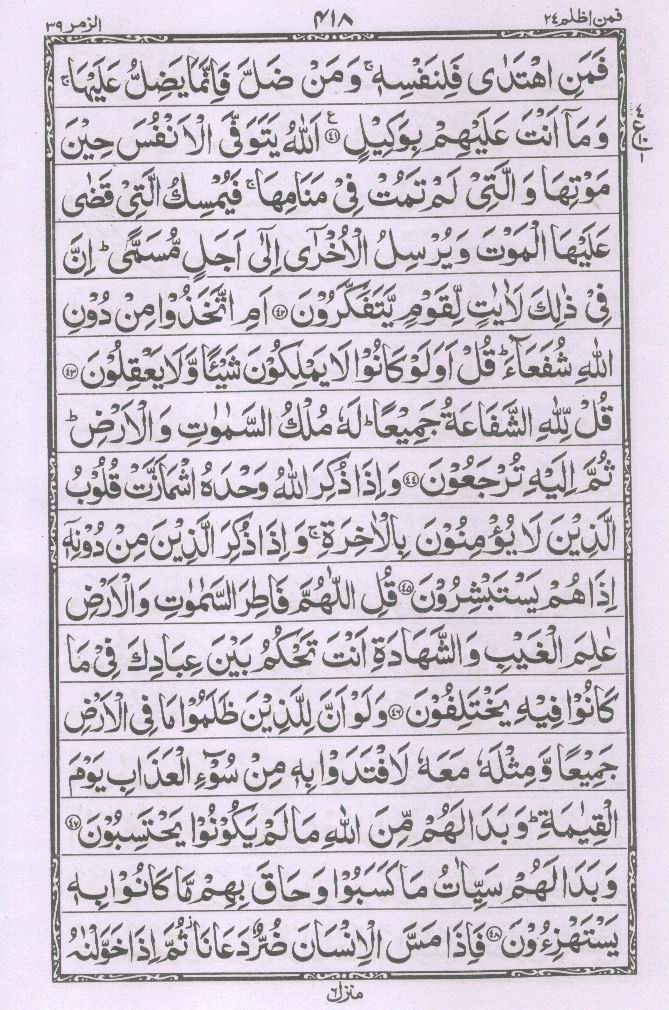 فمن اظلم ٢٤ ٤١٨ الزمر ٣٩
فَمَنِ اهْتَدٰى فَلِنَفْسِهٖ ۚ وَمَنْ ضَلَّ فَاِنَّمَا يَضِلُّ عَلَيْهَا ۚ
وَمَآ اَنْتَ عَلَيْهِمْ بِوَكِيْلٍ ﴿٤١﴾ ع اَللّٰهُ يَتَوَفَّى الْاَنْفُسَ حِيْنَ
مَوْتِهَا وَالَّتِيْ لَمْ تَمُتْ فِيْ مَنَامِهَا ۚ فَيُمْسِكُ الَّتِيْ قَضٰى
عَلَيْهَا الْمَوْتَ وَيُرْسِلُ الْاُخْرٰٓى اِلٰٓى اَجَلٍ مُّسَمًّى ؕ اِنَّ
فِيْ ذٰلِكَ لَاٰيٰتٍ لِّقَوْمٍ يَّتَفَكَّرُوْنَ ﴿٤٢﴾ اَمِ اتَّخَذُوْا مِنْ دُوْنِ
اللّٰهِ شُفَعَآءَ ؕ قُلْ اَوَلَوْ كَانُوْا لَا يَمْلِكُوْنَ شَيْئًا وَّلَا يَعْقِلُوْنَ ﴿٤٣﴾
قُلْ لِّلّٰهِ الشَّفَاعَةُ جَمِيْعًا ؕ لَهٗ مُلْكُ السَّمٰوٰتِ وَالْاَرْضِ ؕ
ثُمَّ اِلَيْهِ تُرْجَعُوْنَ ﴿٤٤﴾ وَاِذَا ذُكِرَ اللّٰهُ وَحْدَهُ اشْمَاَزَّتْ قُلُوْبُ
الَّذِيْنَ لَا يُؤْمِنُوْنَ بِالْاٰخِرَةِ ۚ وَاِذَا ذُكِرَ الَّذِيْنَ مِنْ دُوْنِهٖٓ
اِذَا هُمْ يَسْتَبْشِرُوْنَ ﴿٤٥﴾ قُلِ اللّٰهُمَّ فَاطِرَ السَّمٰوٰتِ وَالْاَرْضِ
عٰلِمَ الْغَيْبِ وَالشَّهَادَةِ اَنْتَ تَحْكُمُ بَيْنَ عِبَادِكَ فِيْ مَا
كَانُوْا فِيْهِ يَخْتَلِفُوْنَ ﴿٤٦﴾ وَلَوْ اَنَّ لِلَّذِيْنَ ظَلَمُوْا مَا فِي الْاَرْضِ
جَمِيْعًا وَّمِثْلَهٗ مَعَهٗ لَافْتَدَوْا بِهٖ مِنْ سُوْٓءِ الْعَذَابِ يَوْمَ
الْقِيٰمَةِ ؕ وَبَدَا لَهُمْ مِّنَ اللّٰهِ مَا لَمْ يَكُوْنُوْا يَحْتَسِبُوْنَ ﴿٤٧﴾
وَبَدَا لَهُمْ سَيِّاٰتُ مَا كَسَبُوْا وَحَاقَ بِهِمْ مَّا كَانُوْا بِهٖ
يَسْتَهْزِءُوْنَ ﴿٤٨﴾ فَاِذَا مَسَّ الْاِنْسَانَ ضُرٌّ دَعَانَا ۫ ثُمَّ اِذَا خَوَّلْنٰهُ
منزل ٦